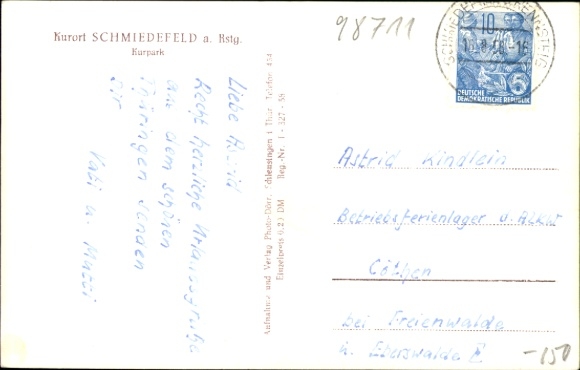 98711
Kurort SCHMIEDEFELD a. Rstg.
Kurpark
Liebe Astrid
Recht herzliche Urlaubsgrüße
aus dem schönen
Thüringen senden
Dir
Vati u. Mutti
Aufnahme und Verlag Photo-Dörr, Schleusingen i. Thür. Telefon 454
Einzelpreis 0,20 DM Reg.-Nr. I - 327 - 58
SCHMIEDEFELD
10
5
DEUTSCHE
DEMOKRATISCHE REPUBLIK
Astrid Kindlein
Betriebsferienlager
Cöthen
bei Freienwalde
n. Eberswalde
-150